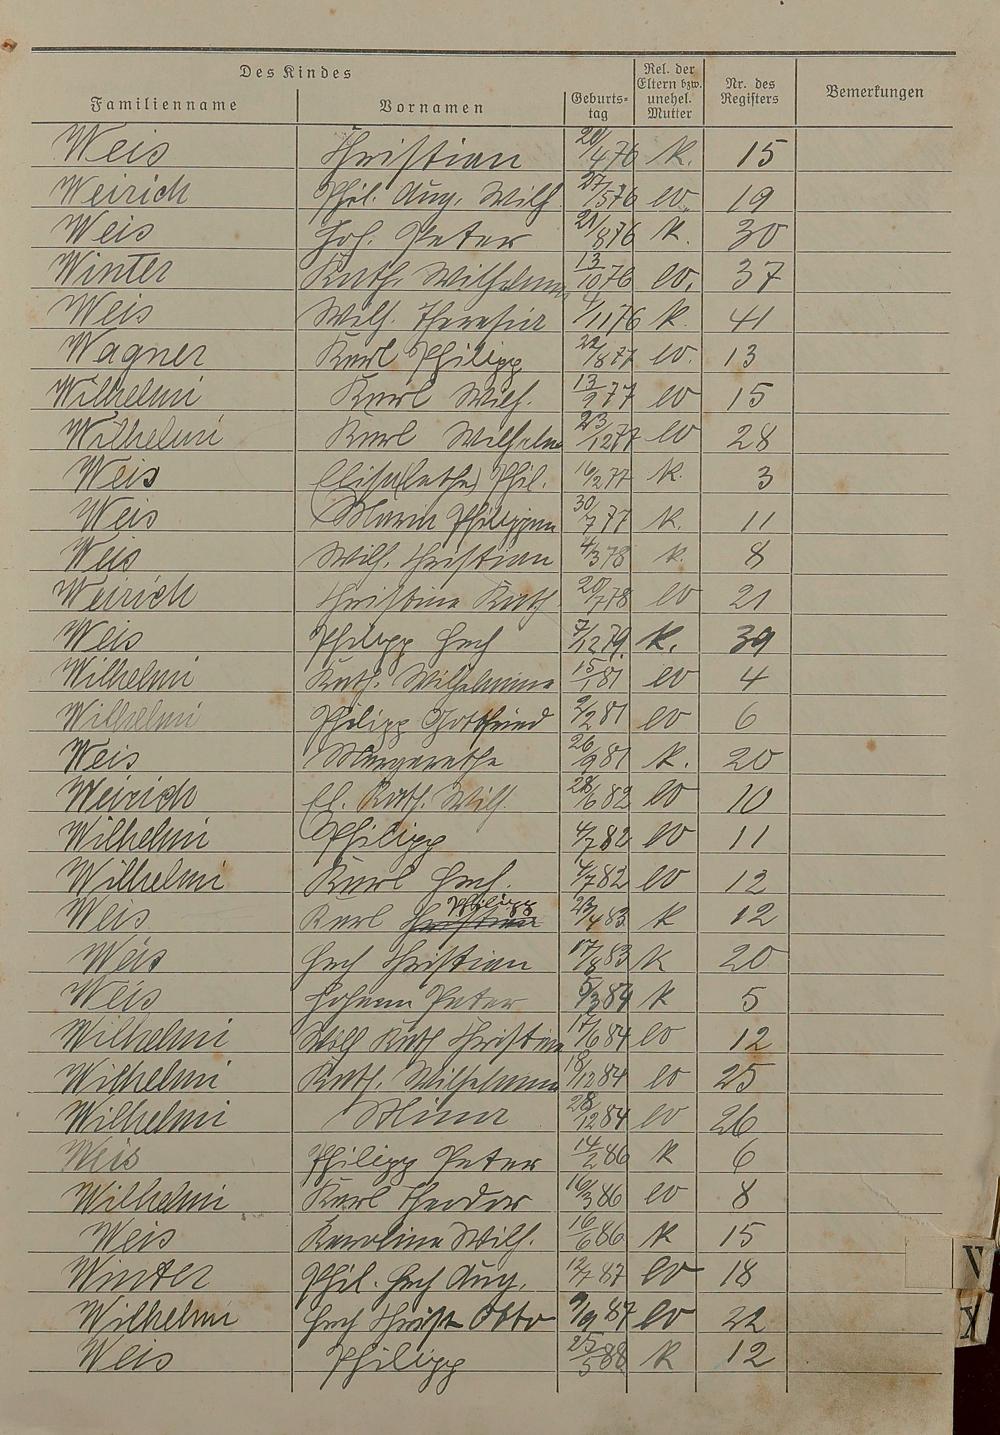 Des Kindes
Familienname Vornamen Geburts-tag Rel. der Eltern bzw. unehel. Mutter Nr. des Registers Bemerkungen
Weis Christian 20/4 76 k. 15
Weirich Phil. Aug. Wilh. 27/5 76 ev. 19
Weis Joh. Peter 21/8 76 k. 30
Winter Kath. Wilhelmine 13/10 76 ev. 37
Weis Wilh. Theresia 4/11 76 k. 41
Wagner Karl Philipp 22/8 77 ev. 13
Wilhelmi Karl Wilh. 13/9 77 ev 15
Wilhelmi Karl Wilhelm 23/12 77 ev 28
Weis Elisa(bethe) Phil. 16/2 77 k. 3
Weis Maria Philippina 30/7 77 k. 11
Weis Wilh. Christian 4/3 78 k. 8
Weirich Christina Kath. 20/7 78 ev 21
Weis Philipp Hch 7/12 79. k. 39
Wilhelmi Kath. Wilhelmine 15/1 81 ev 4
Wilhelmi Philipp Gottfried 2/2 81 ev 6
Weis Margarethe 26/9 81 k. 20
Weirich El. Kath. Wilh. 28/6 82 ev 10
Wilhelmi Philipp 4/7 82 ev 11
Wilhelmi Karl Hch. 4/7 82 ev 12
Weis Karl Christian Philipp 23/4 83 k 12
Weis Hch Christian 17/8 83 k 20
Weis Johann Peter 5/3 84 k 5
Wilhelmi Wilh Kath Christina 17/6 84 ev 12
Wilhelmi Kath. Wilhelmine 18/12 84 ev 25
Wilhelmi Mina 28/12 84 ev 26
Weis Philipp Peter 14/2 86 k 6
Wilhelmi Karl Theodor 16/3 86 ev 8
Weis Karolina Wilh. 16/6 86 k 15
Winter Phil. Hch Aug. 12/7 87 ev 18
Wilhelmi Hch Christ Otto 9/9 87 ev 22
Weis Philipp 25/5 88 k 12
V
X